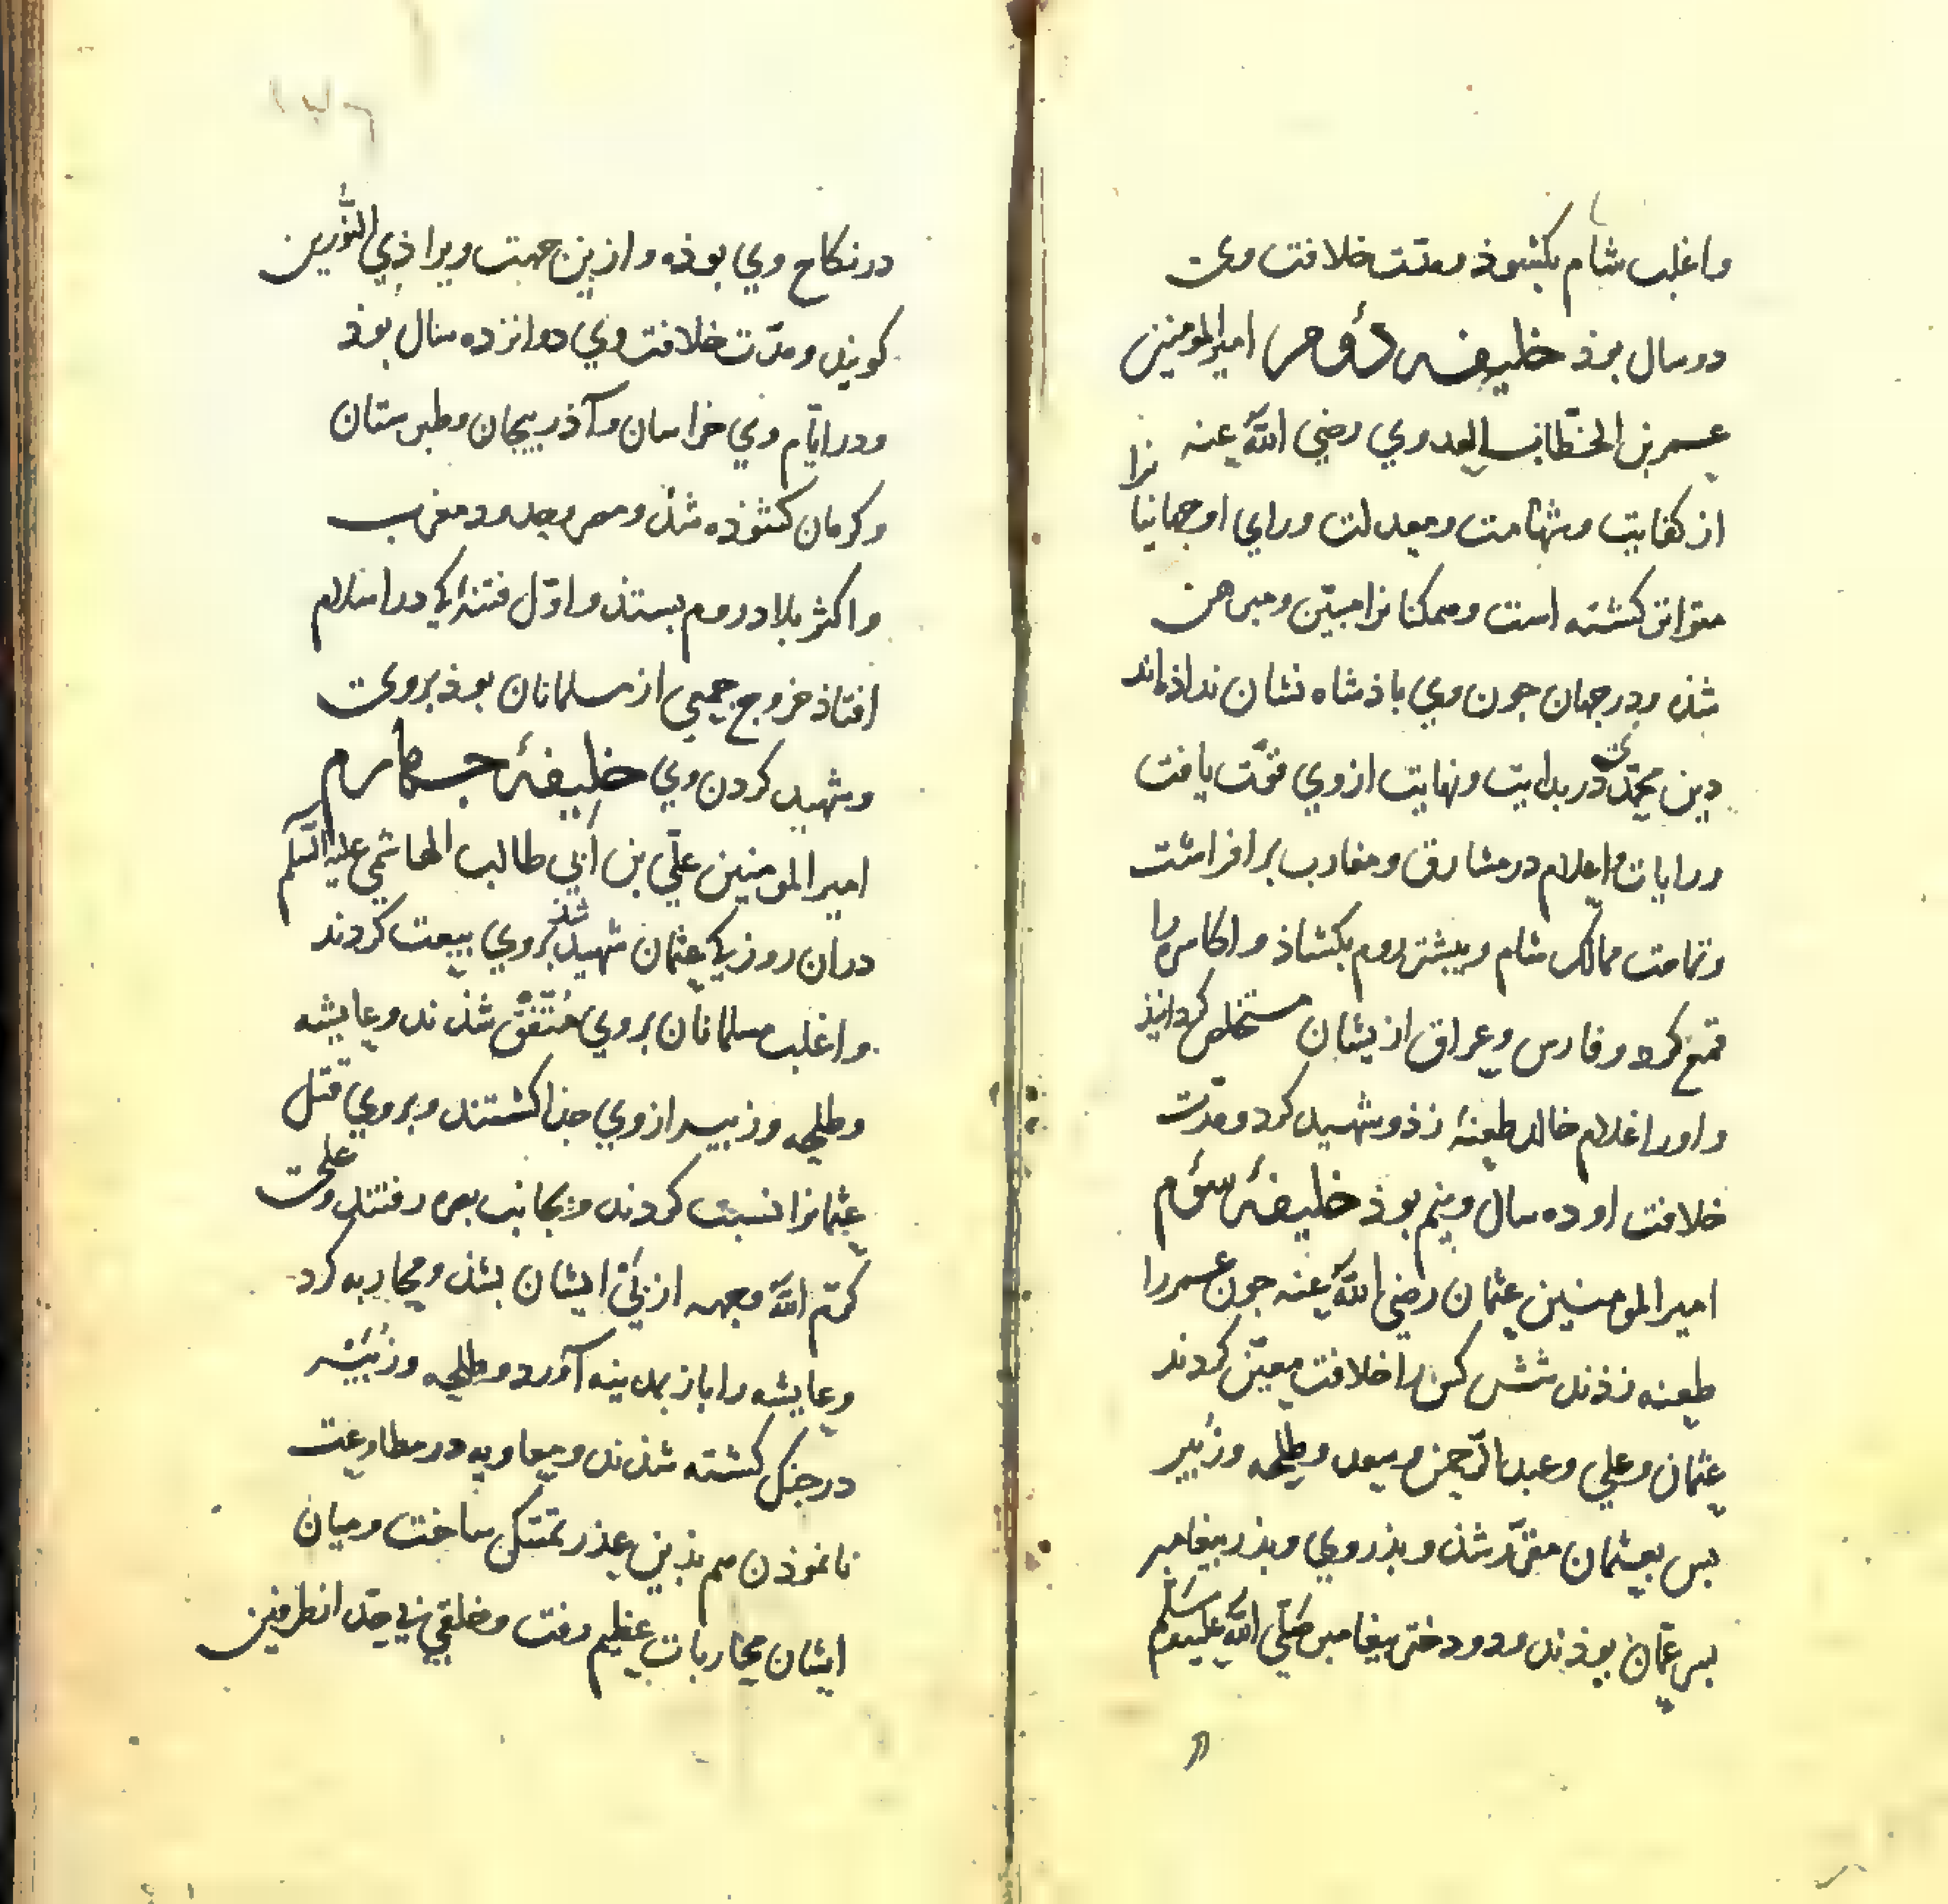 واغلب شام بکشوذ ومدّت خلافت وی
دو سال بوذ خلیفه دوم امیرالمومنین
عمر بن الخطاب العدوي رضي الله عنه
از کفایت وشهامت ومعدلت ورای او جهانیانرا
متواتر کشته است وممکنانرا مبیّن ومبرهن
شذه ودر جهان جون وي باذشاه نشان نداذهاند
دین محمّدی در بدایت ونهایت ازوي قوّت یافت
ورایات اعلام در مشارق ومغارب برافراشت
وتمامت ممالک شام وبیشتر روم بکشاذ واکاسره را
قمع کرد وفارس وعراق ازیشان مستخلص کردانیذ
واورا غلام خالد طعنهٔ زذ وشهید کرد ومدّت
خلافت او ده سال ونیم بوذ خلیفهٔ سوم
امیرالمومنین عثمان رضي الله عنه جون عمررا
طعنه زذند شش کس را خلافت معیّن کردند
عثمان وعلي وعبدالرّحمن وسعد وطلحه وزبیر
بس بعثمان مقرّر شذ وبذر وي وبذر بیغامبر
بسر عمّان بوذند ودو دختر بیغامبر صلّی الله علیه وسلّم
در نکاح وي بوذه وازین جهت ویرا ذي النّورین
کویند ومدّت خلافت وي دوانزده سال بوذ
ودر ایّام وي خراسان وآذربیجان وطبرستان
وکرمان کشوذه شذ ومصر وحدود مغرب
واکثر بلاد روم بستذ واوّل فتنهٔ کی در اسلام
افتاذ خروج جمعي از مسلمانان بوذ بر وی
وشهید کردن وي خلیفهٔ جهارم
امیرالمومنین علي بن أبي طالب الهاشمي علیه السّلم
دران روز کی عثمان شهید شذ بر وي بیعت کردند
واغلب مسلمانان بر وي متّفق شذند وعایشه
وطلحه وزبیر ازوي جذا کشتند وبر وي قتل
عثمانرا نسبت کردند وبجانب بصره رفتند وعلی
کرّم الله وجهه از بی ایشان بشذ ومحاربه کرد
وعایشه را باز بمدینه آورد وطلحه وزُبَیْر
در جنک کشته شذند ومعاویه در مطاوعت
نانموذن هم بذین عذر تمسّک ساخت ومیان
ایشان محاربات عظیم رفت وخلقي بی حدّ از طرفین